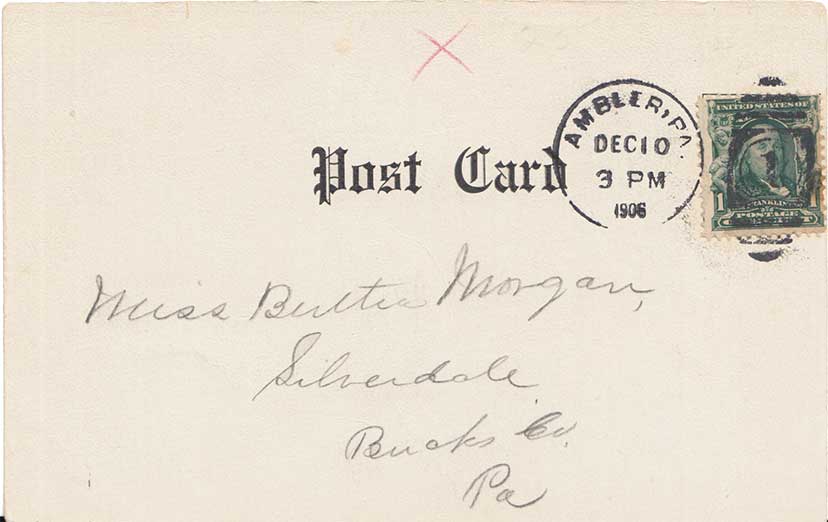 AMBLER, PA.
DEC 10
3 PM
1906
UNITED STATES OF
1 FRANKLIN 1
POSTAGE
Post Card
Miss Morgan,
Silverdale
Bucks Co.
Pa